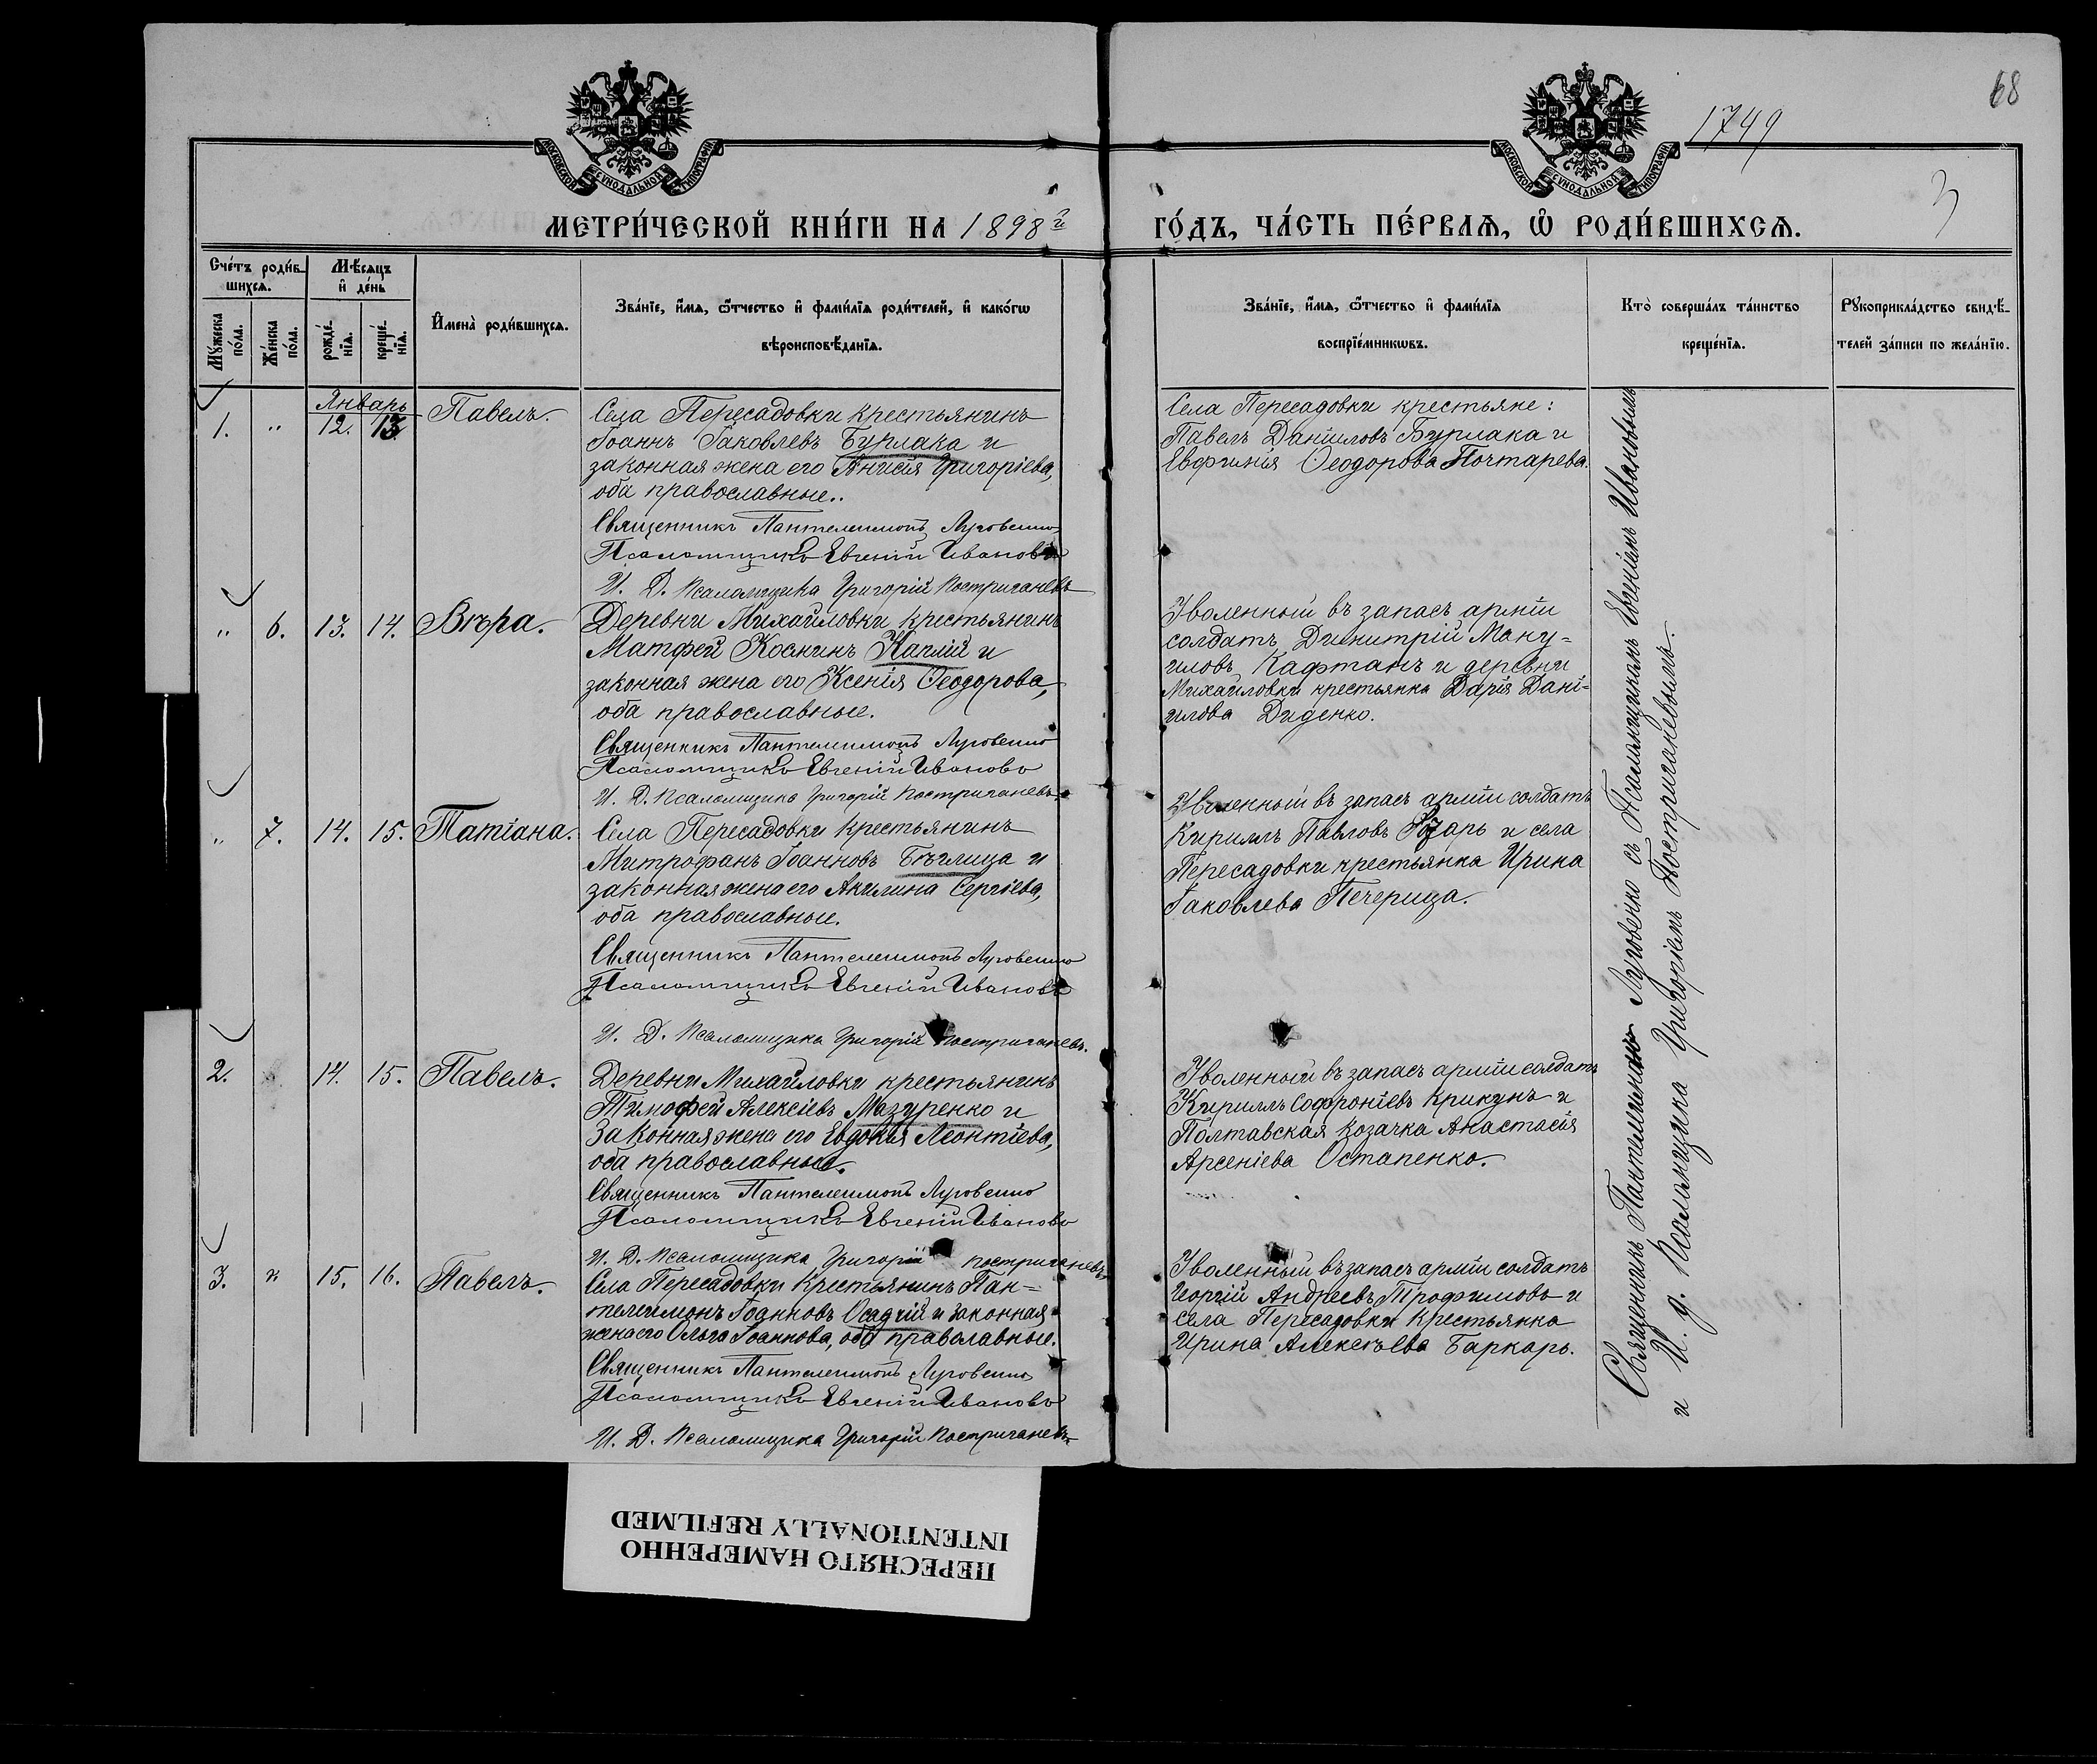 68
1749
3
МОСКОВСКОЙ СѴНОДАЛЬНОЙ ТИПОГРАФІИ
МОСКОВСКОЙ СѴНОДАЛЬНОЙ ТИПОГРАФІИ
МЕТРИ́ЧЕСКОЙ КНИ́ГИ НА 1898й
ГО́ДЪ, ЧА́СТЬ ПЕ́РВАѦ, Ѡ҆ РОДИ́ВШИХСѦ.
Сче́тъ роди́в-
шихсѧ.
Мꙋ́жеска по́ла.
Же́нска по́ла.
Мѣ́сѧцъ
и҆ де́нь
рожде́-
нїѧ.
креще́-
нїѧ.
И҆мена̀ роди́вшихсѧ.
Зва́нїе, и҆́мѧ, ѻ҆́тчество и҆ фами́лїѧ роди́телей, и҆ како́гѡ
вѣроисповѣ́данїѧ.
Зва́нїе, и҆́мѧ, ѻ҆́тчество и҆ фами́лїѧ
воспрїе́мникѡвъ.
Кто̀ соверша́лъ та́инство
креще́нїѧ.
Рꙋкоприкла́дство свидѣ́-
телей за́писи по жела́нїю.
Январь
1. " 12. 13. Павелъ.
Села Пересадовки крестьянинъ
Іоаннъ Іаковлевъ Бурлака и
законная жена его Анисія Григоріева,
оба православные.
Священникъ Пантелеимонъ Луговенко
Псаломщикъ Евгеній Ивановъ
И. Д. Псаломщика Григорій Постриганевъ
Села Пересадовки крестьяне:
Павелъ Даніиловъ Бурлака и
Евфимія Ѳеодорова Почтарева.
" 6. 13. 14. Вѣра.
Деревни Михайловки крестьянинъ
Матфей Косминъ Капій и
законная жена его Ксенія Ѳеодорова,
оба православные.
Священникъ Пантелеимонъ Луговенко
Псаломщикъ Евгеній Ивановъ
И. Д. Псаломщика Григорій Постриганевъ
Уволенный въ запасъ арміи
солдатъ Димитрій Ману-
иловъ Кафтанъ и деревни
Михайловки крестьянка Дарія Дані-
илова Диденко.
" 7. 14. 15. Татіана.
Села Пересадовки крестьянинъ
Митрофанъ Іоанновъ Бѣглица и
законная жена его Акилина Сергіева,
оба православные.
Священникъ Пантелеимонъ Луговенко
Псаломщикъ Евгеній Ивановъ
И. Д. Псаломщика Григорій Постриганевъ.
Уволенный въ запасъ арміи солдатъ
Кириллъ Павловъ и села
Пересадовки крестьянка Ирина
Іаковлева Печерица.
2. 14. 15. Павелъ.
Деревни Михайловки крестьянинъ
Тимофей Алексіевъ Мазуренко и
законная жена его Евдокія Леонтіева,
оба православные.
Священникъ Пантелеимонъ Луговенко
Псаломщикъ Евгеній Ивановъ
И. Д. Псаломщика Григорій Постриганевъ
Уволенный въ запасъ арміи солдатъ
Кириллъ Софроніевъ Крикунъ и
Полтавская козачка Анастасія
Арсеніева Остапенко.
3. " 15. 16. Павелъ.
Села Пересадовки крестьянинъ Пан-
телеимонъ Іоанновъ Осадчій и законная
жена его Ольга Іоаннова, оба православные.
Священникъ Пантелеимонъ Луговенко
Псаломщикъ Евгеній Ивановъ
И. Д. Псаломщика Григорій Постриганевъ
Уволенный въ запасъ арміи солдатъ
Георгій Андреевъ Трофимовъ и
села Пересадовки крестьянка
Ирина Алексѣева Баркарь.
Священникъ Пантелеимонъ Луговенко съ Псаломщикомъ Евгеніемъ Ивановымъ
и И. д. Псаломщика Григоріемъ Постриганевымъ.
ПЕРЕСНЯТО НАМЕРЕННО
INTENTIONALLY REFILMED